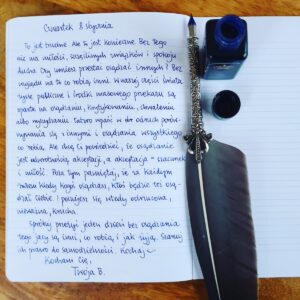 Czwartek 8 stycznia
To jest trudne. Ale to jest konieczne. Bez tego
nie ma miłości, szczęśliwych związków i spokoju
ducha. Czy umiesz przestać osądzać innych? Bez
względu na to co robią inni. W naszej części świata
życie publiczne i środki masowego przekazu są
oparte na osądzaniu, krytykowaniu, chwaleniu
albo wyszydzaniu. Łatwo wpaść w ten odruch porów-
nywania się z innymi i osądzania wszystkiego
co robią. Ale chcę Ci powiedzieć, że osądzanie
jest odwrotnością akceptacji, a akceptacja = szacunek
i miłość. Poza tym pamiętaj, że za każdym
razem kiedy kogoś osądzasz, ktoś będzie też osą-
dzał Ciebie. I poczujesz się wtedy odrzucona,
nieważna, krucha.
Spróbuj przeżyć jeden dzień bez osądzania
tego jacy są inni, co robią i jak żyją. Szanuj
ich prawo do samodzielności. Kochaj.
Kocham Cię,
Twoja B.